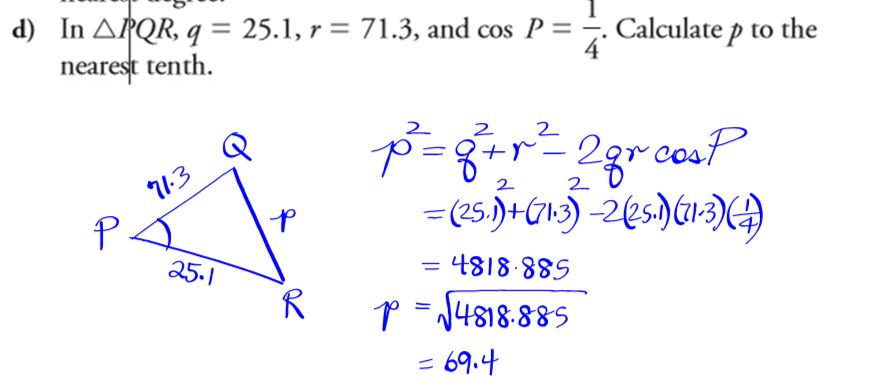 d) In △PQR, q = 25.1, r = 71.3, and cos P = 1/4. Calculate p to the
nearest tenth.
Q
71.3
P
p
25.1
R
p² = q² + r² - 2qr cos P
= (25.1)² + (71.3)² - 2(25.1)(71.3)(1/4)
= 4818.885
p = √4818.885
= 69.4